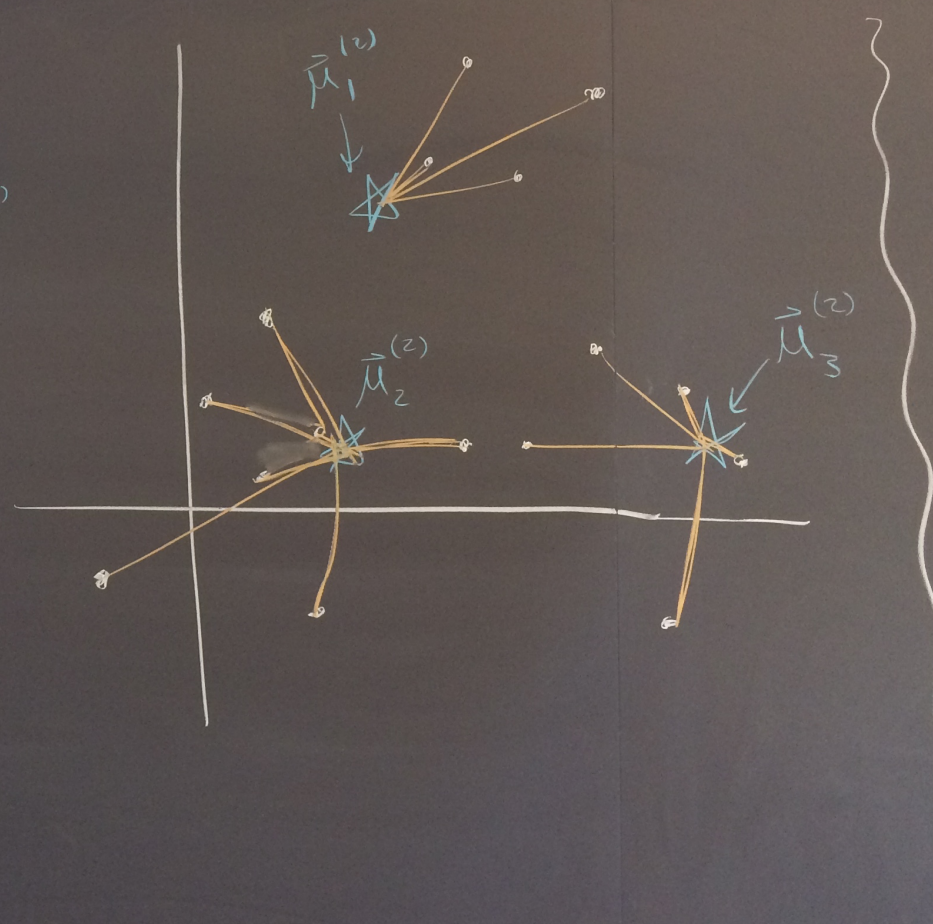 μ⃗₁⁽²⁾
μ⃗₂⁽²⁾
μ⃗₃⁽²⁾
)